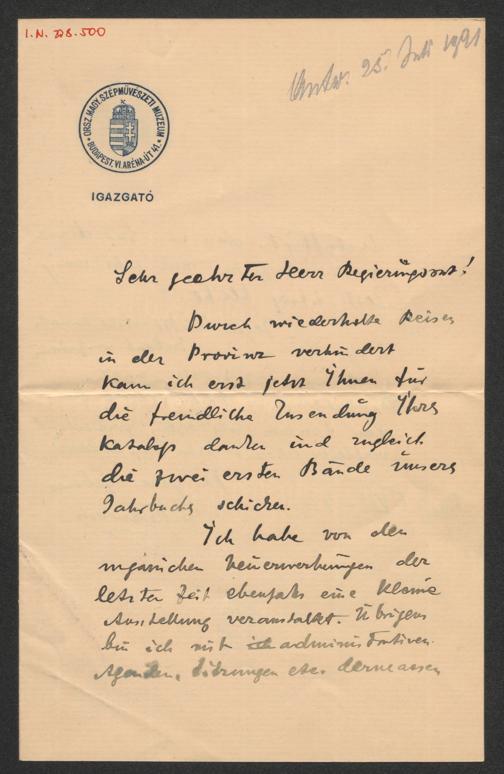 I.N. 228.500
Antw. 25. Juli 1921
ORSZ. MAGY. SZÉPMŰVÉSZETI MÚZEUM
BUDAPEST. VI. ARÉNA-ÚT 41.
IGAZGATÓ
Sehr geehrter Herr Regierungsrat!
Durch wiederholte Reisen
in der Provinz verhindert
kann ich erst jetzt Ihnen für
die freundliche Zusendung Ihres
Katalogs danken und zugleich
die zwei ersten Bände unseres
Jahrbuchs schicken.
Ich habe von den
ungarischen Neuerwerbungen der
letzten Zeit ebenfalls eine kleine
Ausstellung veranstaltet. Übrigens
bin ich mit administrativen
Agenden, Sitzungen etc. dermassen